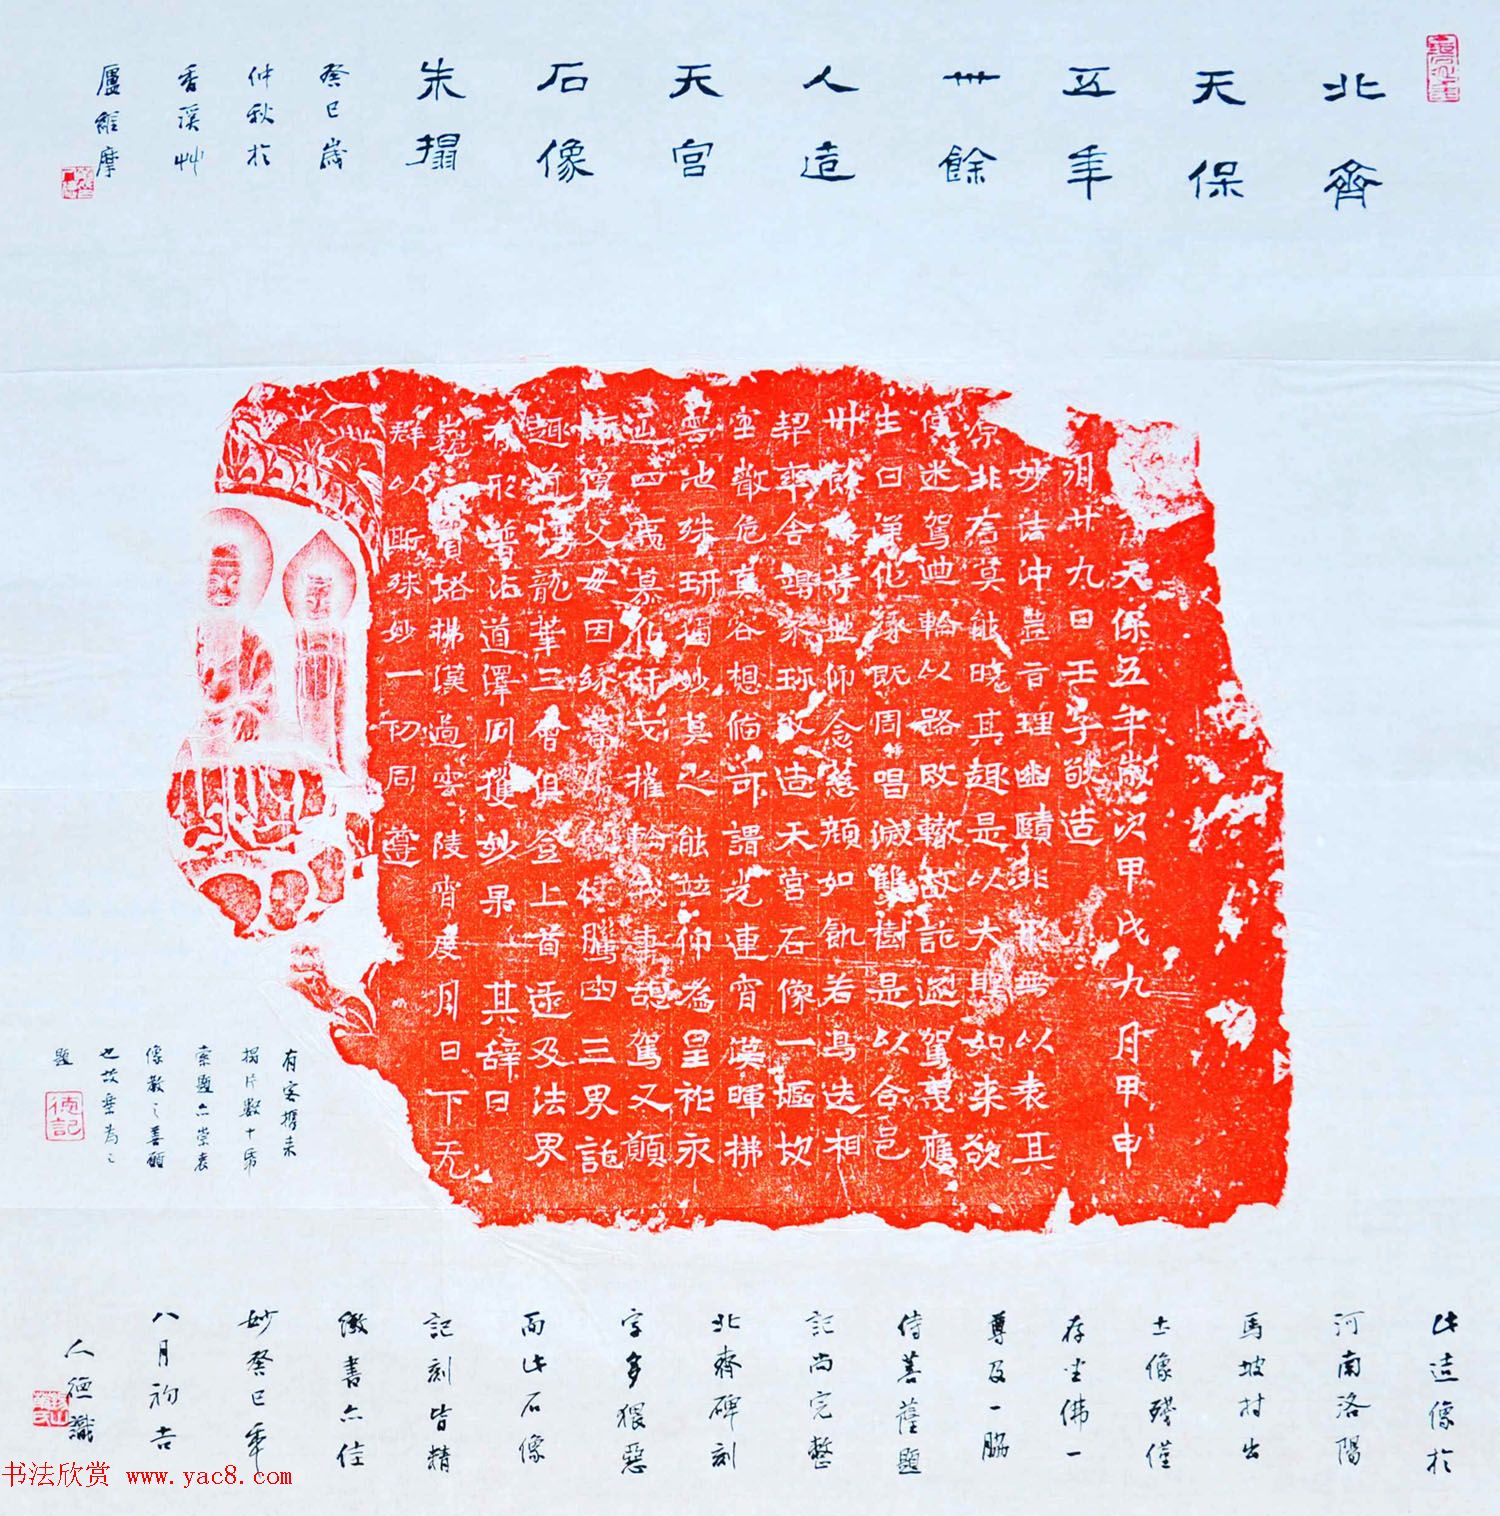 北齊
天保
五年
卅餘
人造
天宮
石像
朱搨
癸巳歲
仲秋於
香溪艸
廬維摩
天保五年歲次甲戌九月甲申
朔廿九日壬子敬造
妙法沖豈言理幽賾非形無以表其
原非言莫能曉其趣是以大聖如來欲
使迷駕迴輪以路改轍故託遊駕萬應
生日淨化緣既周唱滅雙樹是以合邑
卅餘人等並仰念慈顏如飢若渴迭相
契率舍竭家珍敬造天宮石像一堰坎
室嚴危真容想俻可謂光連宵漢暉拂
雲池殊研描妙莫之能並仰為皇祚永
四 慕化 戈摧 事 駕又願
師僧父母因緣 騰 四三界託
趣道場龍華三會俱登上首逕及法界
有形普沾道澤同獲妙果其辞曰
巍 寶塔拂漢過雲陵宵度月日下无
群以斯殊妙一切同尊
有客携来
搨片數十番
索題亦崇表
像教之善願
也故垂為之
題
德記
此造像於
河南洛陽
馬坡村出
土像殘僅
存坐佛一
尊及一脇
侍菩薩題
記尚完整
北齊碑刻
字多猥惡
而此石像
記刻皆精
緻書亦佳
妙癸巳年
八月初吉
人德識
书法欣赏 www.yac8.com